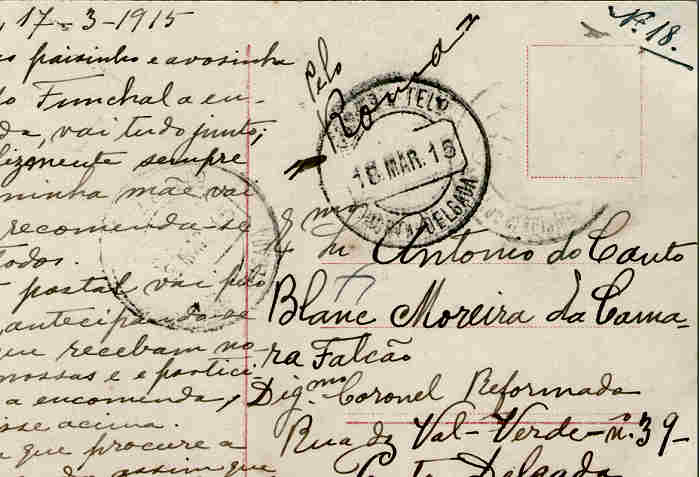 17-3-1915
paisinho e avosinha
Funchal a en-
da, vai tudo junto;
lizmente sempre
minha mãe vai
recomenda-se
todos.
postal vai pelo
antecipando-se
que recebam no
nossas e e partici
a encomenda,
sse acima.
que procure a
do assim que
Nº 18.
Pelo
TEL
18.MAR.15
PONTA-DELGADA
Exmo
Sr Antonio do Canto
Blanc Moreira da Cama-
ra Falcão
Dig.mo Coronel Reformado
Rua do Val-Verde-nº.39-
Delgada